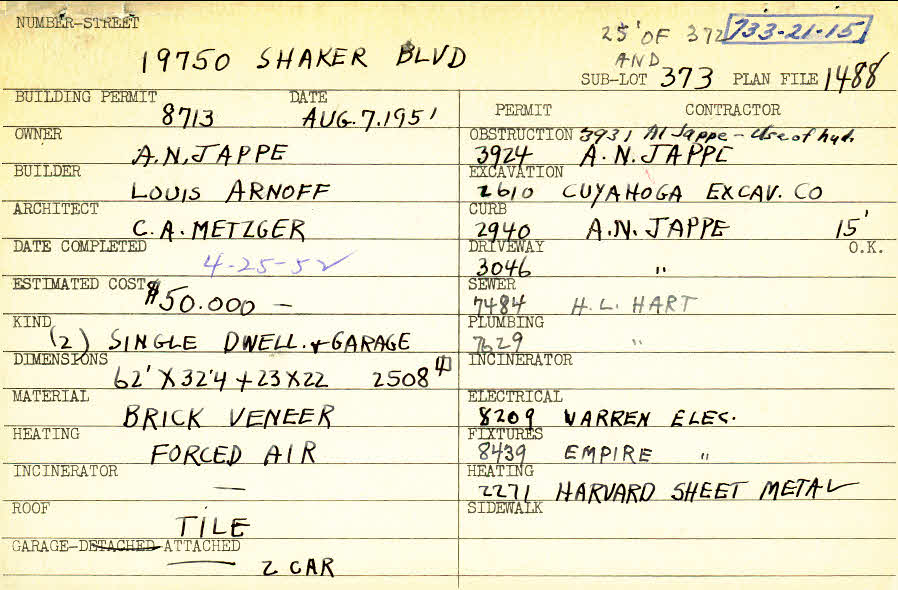 NUMBER-STREET
19750 SHAKER BLVD
25' OF 372 733-21-15
AND
SUB-LOT 373 PLAN FILE 1488
BUILDING PERMIT DATE
8713 AUG. 7. 1951
OWNER
A.N. JAPPE
BUILDER
LOUIS ARNOFF
ARCHITECT
C.A. METZGER
DATE COMPLETED
4-25-52
ESTIMATED COST
$50.000 —
KIND
(2) SINGLE DWELL. + GARAGE
DIMENSIONS
62' X 32'4 + 23 X 22 2508
MATERIAL
BRICK VENEER
HEATING
FORCED AIR
INCINERATOR
—
ROOF
TILE
GARAGE-DETACHED-ATTACHED
2 CAR
PERMIT CONTRACTOR
OBSTRUCTION 3931 Al Jappe - Use of hyd.
3924 A.N. JAPPE
EXCAVATION
2610 CUYAHOGA EXCAV. CO
CURB
2940 A.N. JAPPE 15'
DRIVEWAY O.K.
3046 "
SEWER
7484 H.L. HART
PLUMBING
7629 "
INCINERATOR
ELECTRICAL
8209 WARREN ELEC.
FIXTURES
8439 EMPIRE "
HEATING
2271 HARVARD SHEET METAL
SIDEWALK